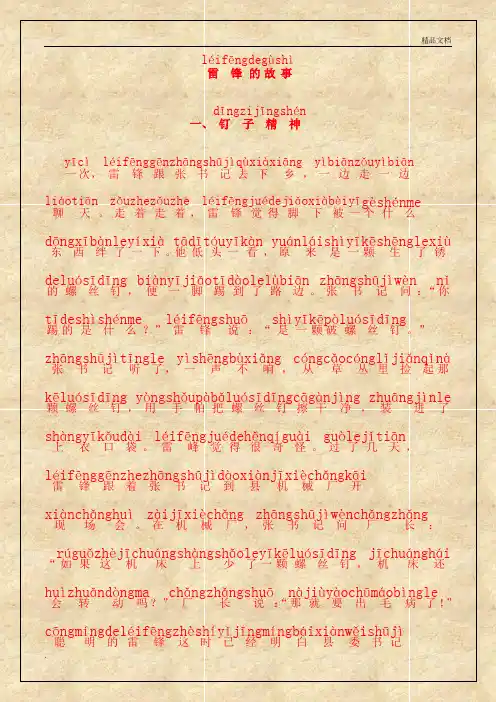 精品文档
léifēngdegùshì
雷锋的故事
dīngzijīngshén
一、钉子精神
yīcì léifēnggēnzhāngshūjìqùxiàxiāng yìbiānzǒuyìbiān
一次,雷锋跟张书记去下乡,一边走一边
liáotiān zǒuzhezǒuzhe léifēngjuédejiǎoxiàbèiyīgèshénme
聊天。走着走着,雷锋觉得脚下被一个什么
dōngxībànleyíxià tādītóuyīkàn yuánláishìyīkēshēnglexiù
东西绊了一下。他低头一看,原来是一颗生了锈
deluósīdīng biànyìjiǎotīdàolelùbiān zhāngshūjìwèn nǐ
的螺丝钉,便一脚踢到了路边。张书记问:“你
tīdeshìshénme léifēngshuō shìyīkēpòluósīdīng
踢的是什么?”雷锋说:“是一颗破螺丝钉。”
zhāngshūjìtīngle yìshēngbùxiǎng cóngcǎocónglǐjiǎnqǐnà
张书记听了,一声不响,从草丛里捡起那
kēluósīdīng yòngshǒupàbǎluósīdīngcāgànjìng zhuāngjìnle
颗螺丝钉,用手帕把螺丝钉擦干净,装进了
shàngyīkǒudài léifēngjuédehěnqíguài guòlejǐtiān
上衣口袋。雷峰觉得很奇怪。过了几天,
léifēnggēnzhezhāngshūjìdàoxiànjīxièchǎngkāi
雷锋跟着张书记到县机械厂开
xiànchǎnghuì zàijīxièchǎng zhāngshūjìwènchǎngzhǎng
现场会。在机械厂,张书记问厂长:
rúguǒzhèjīchuángshàngshǎoleyīkēluósīdīng jīchuánghái
“如果这机床上少了一颗螺丝钉,机床还
huìzhuàndòngma chǎngzhǎngshuō nàjiùyàochūmáobìngle
会转动吗?”厂长说:“那就要出毛病了!”
cōngmíngdeléifēngzhèshíyǐjīngmíngbáixiànwěishūjì
聪明的雷锋这时已经明白县委书记
.